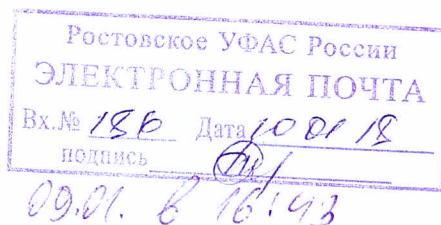 Ростовское УФАС России
ЭЛЕКТРОННАЯ ПОЧТА
Вх.№ 186 Дата 10 01 18
подпись
09.01. в 16:43